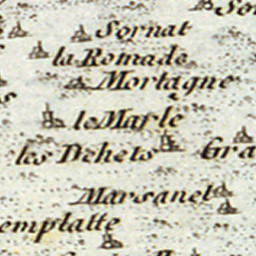 Sornat
la Romade
Mortagne
le Marle
les Dehets
Gra
Marsanet
emplatte